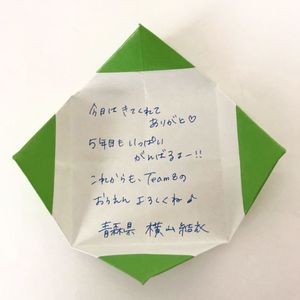 今日はきてくれて
ありがと♡
5年目もいっぱい
がんばるよー!!
これからも、Team8の
おうえんよろしくね♪
青森県 横山結衣